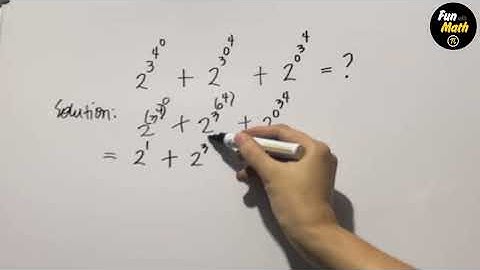 Fun with
Math
π
2^{3^{4^{0}}} + 2^{3^{0^{4}}} + 2^{0^{3^{4}}} = ?
Solution: 2^{(3^{4})^{0}} + 2^{3^{(0^{4})}} + 2^{0^{3^{4}}}
= 2^{1} + 2^{3}